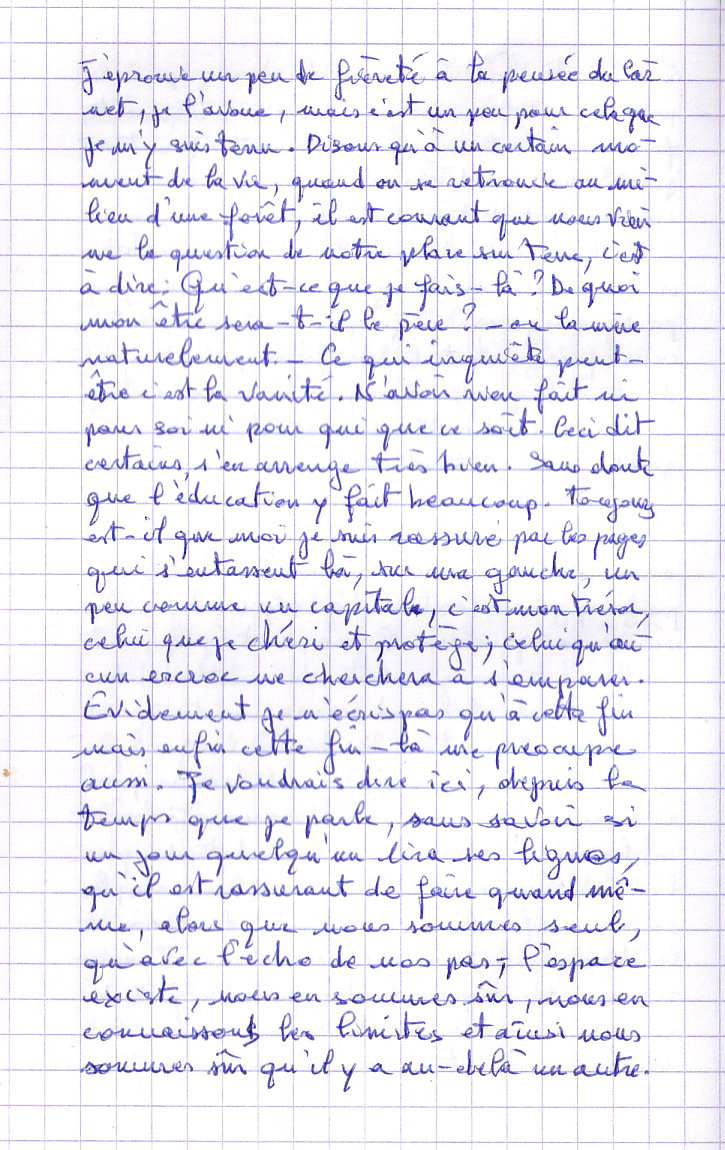 J'éprouve un peu de fièreté à la pensée du car
net, je l'avoue, mais c'est un peu pour cela que
je m'y suis tenu. Disons qu'à un certain mo-
ment de la vie, quand on se retrouve au mi-
lieu d'une forêt, il est courant que nous vien
ne la question de notre place sur Terre, c'est
à dire: Qu'est-ce que je fais-là? De quoi
mon être sera-t-il le père? - ou la mère
naturellement - Ce qui inquiète peut-
être c'est la vanité. N'avoir rien fait ni
pour soi ni pour qui que ce soit. Ceci dit
certains, s'en arrenge très bien. Sans doute
que l'éducation y fait beaucoup. Toujours
est-il que moi je suis rassuré par les pages
qui s'entassent là, sur ma gauche, un
peu comme un capitale, c'est mon trésor,
celui que je chéri et protège; celui qu'au
cun escroc ne cherchera à s'emparer.
Évidement je n'écris pas qu'à cette fin
mais enfin cette fin-là me préocupe
aussi. Je voudrais dire ici, depuis le
temps que je parle, sans savoir si
un jour quelqu'un lira ses lignes,
qu'il est rassurant de faire quand mê-
me, alors que nous sommes seul,
qu'avec l'écho de nos pas, l'espace
existe, nous en sommes sûr, nous en
connaissons les limites et ainsi nous
sommes sûr qu'il y a au-delà un autre.